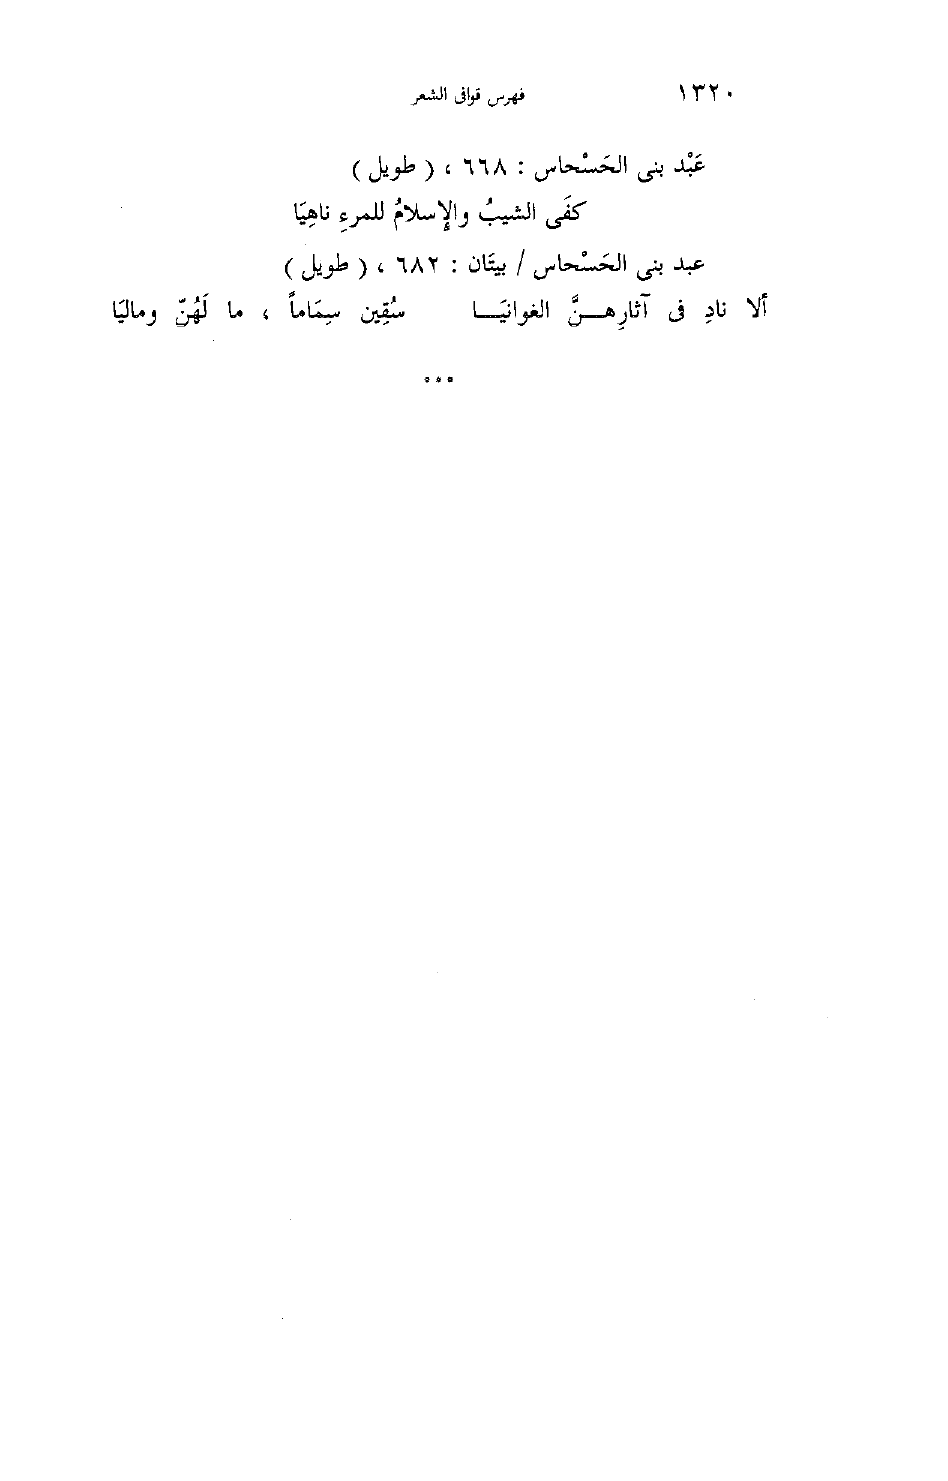 ١٣٢٠ فهرس قوافى الشعر
عَبْد بنى الحَسْحاس : ٦٦٨ ، ( طويل )
كفَى الشيبُ والإِسلامُ للمرءِ ناهِيَا
عبد بنى الحَسْحاس / بيتَان : ٦٨٢ ، ( طويل )
ألا نادِ فى آثارِهــنَّ الغوانيَــا سُقِين سِمَاماً ، ما لَهُنّ وماليَا
***